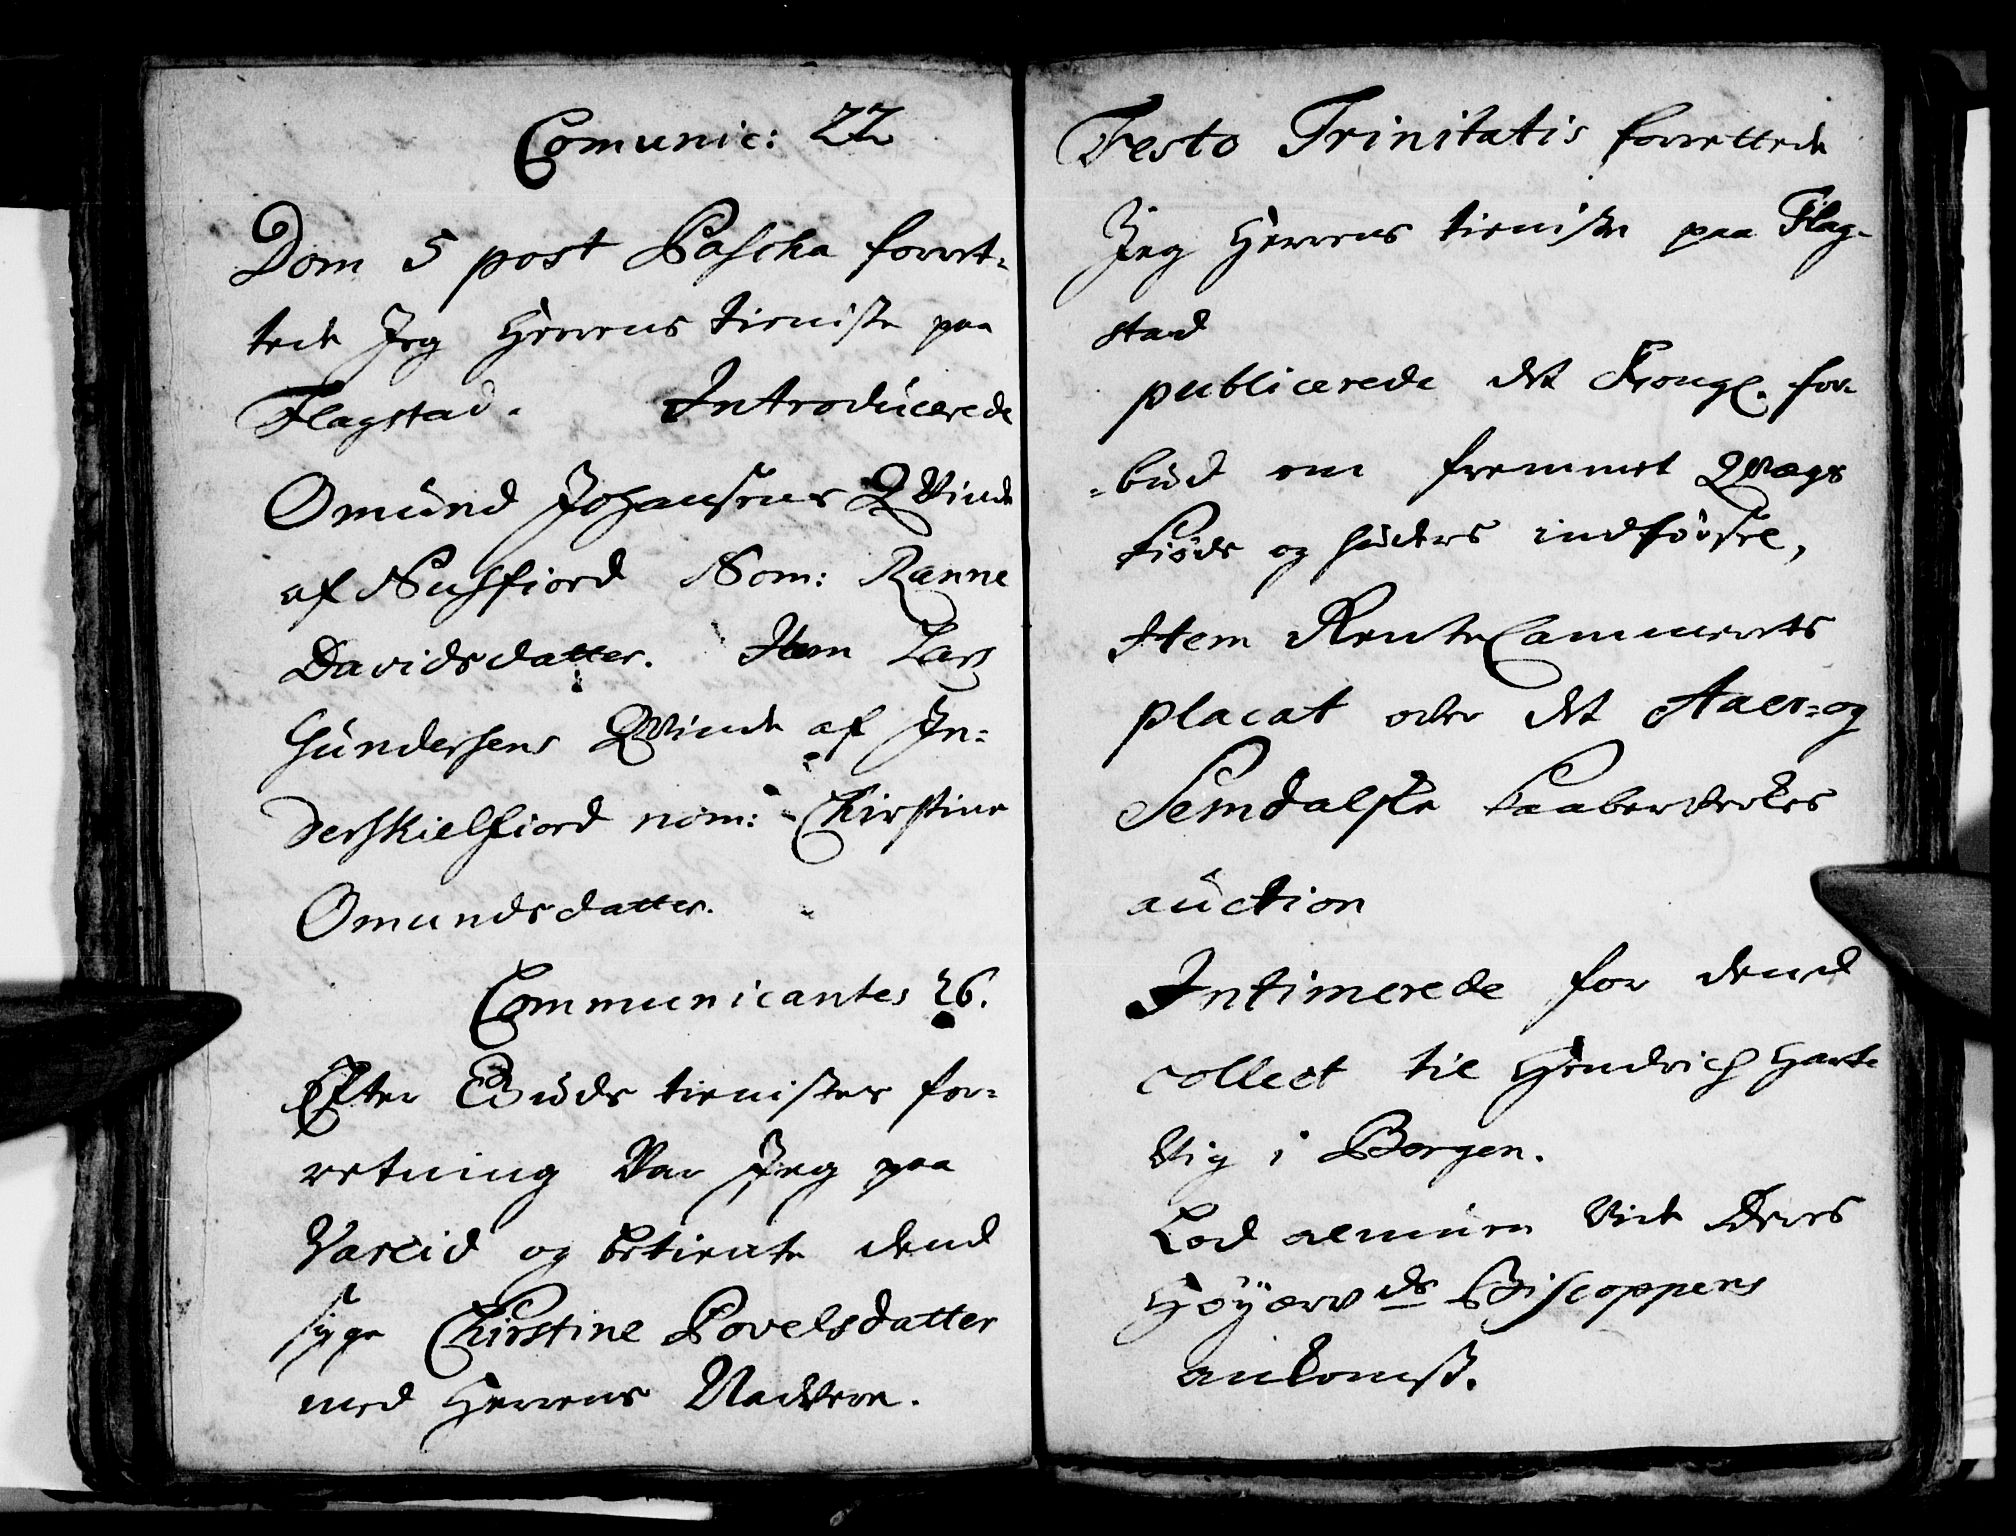 Comunic: 22
Dom 5 post Pascha forret-
tede Jeg Herrens tieniste paa
Flagstad. Introducerede
Omund Johansens Qvinde
af Nusfiord Nom: Ranne
Davidsdatter. Item Lars
Gundersens Qvinde af In-
derskielfiord nom: Chirstine
Omundsdatter.
Communicantes 26.
Efter Guds tienistes for-
retning Var Jeg paa
Vareid og betiente dend
syge Chirstine Povelsdatter
med Herrens Nadvere.
Festo Trinitatis forrettede
Jeg Herrens tieniste paa Flag-
stad
publicerede det Kongl. for-
-bud om fremmet Qvægs
Kiøds og huders indførsel,
Item RenteCammerets
placat over det Aaer- og
Semdalske Kaaberverkes
auction
Intimerede for dend
collect til Hendrich Hart-
vig i Borgen.
Lod almuen Vide Deres
Höÿærvds Biscoppens
ankomst.